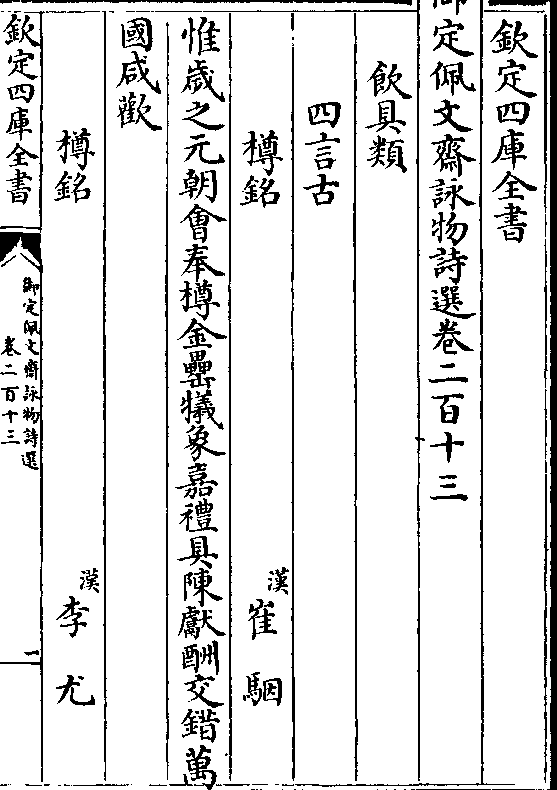 欽定四庫全書
御定佩文齋詠物詩選卷二百十三
飲具類
四言古
樽銘 漢崔駰
惟歲之元朝會奉樽金罍犧象嘉禮具陳獻酬交錯萬
國咸歡
樽銘 漢李尤
欽定四庫全書
御定佩文齋詠物詩選
卷二百十三
一